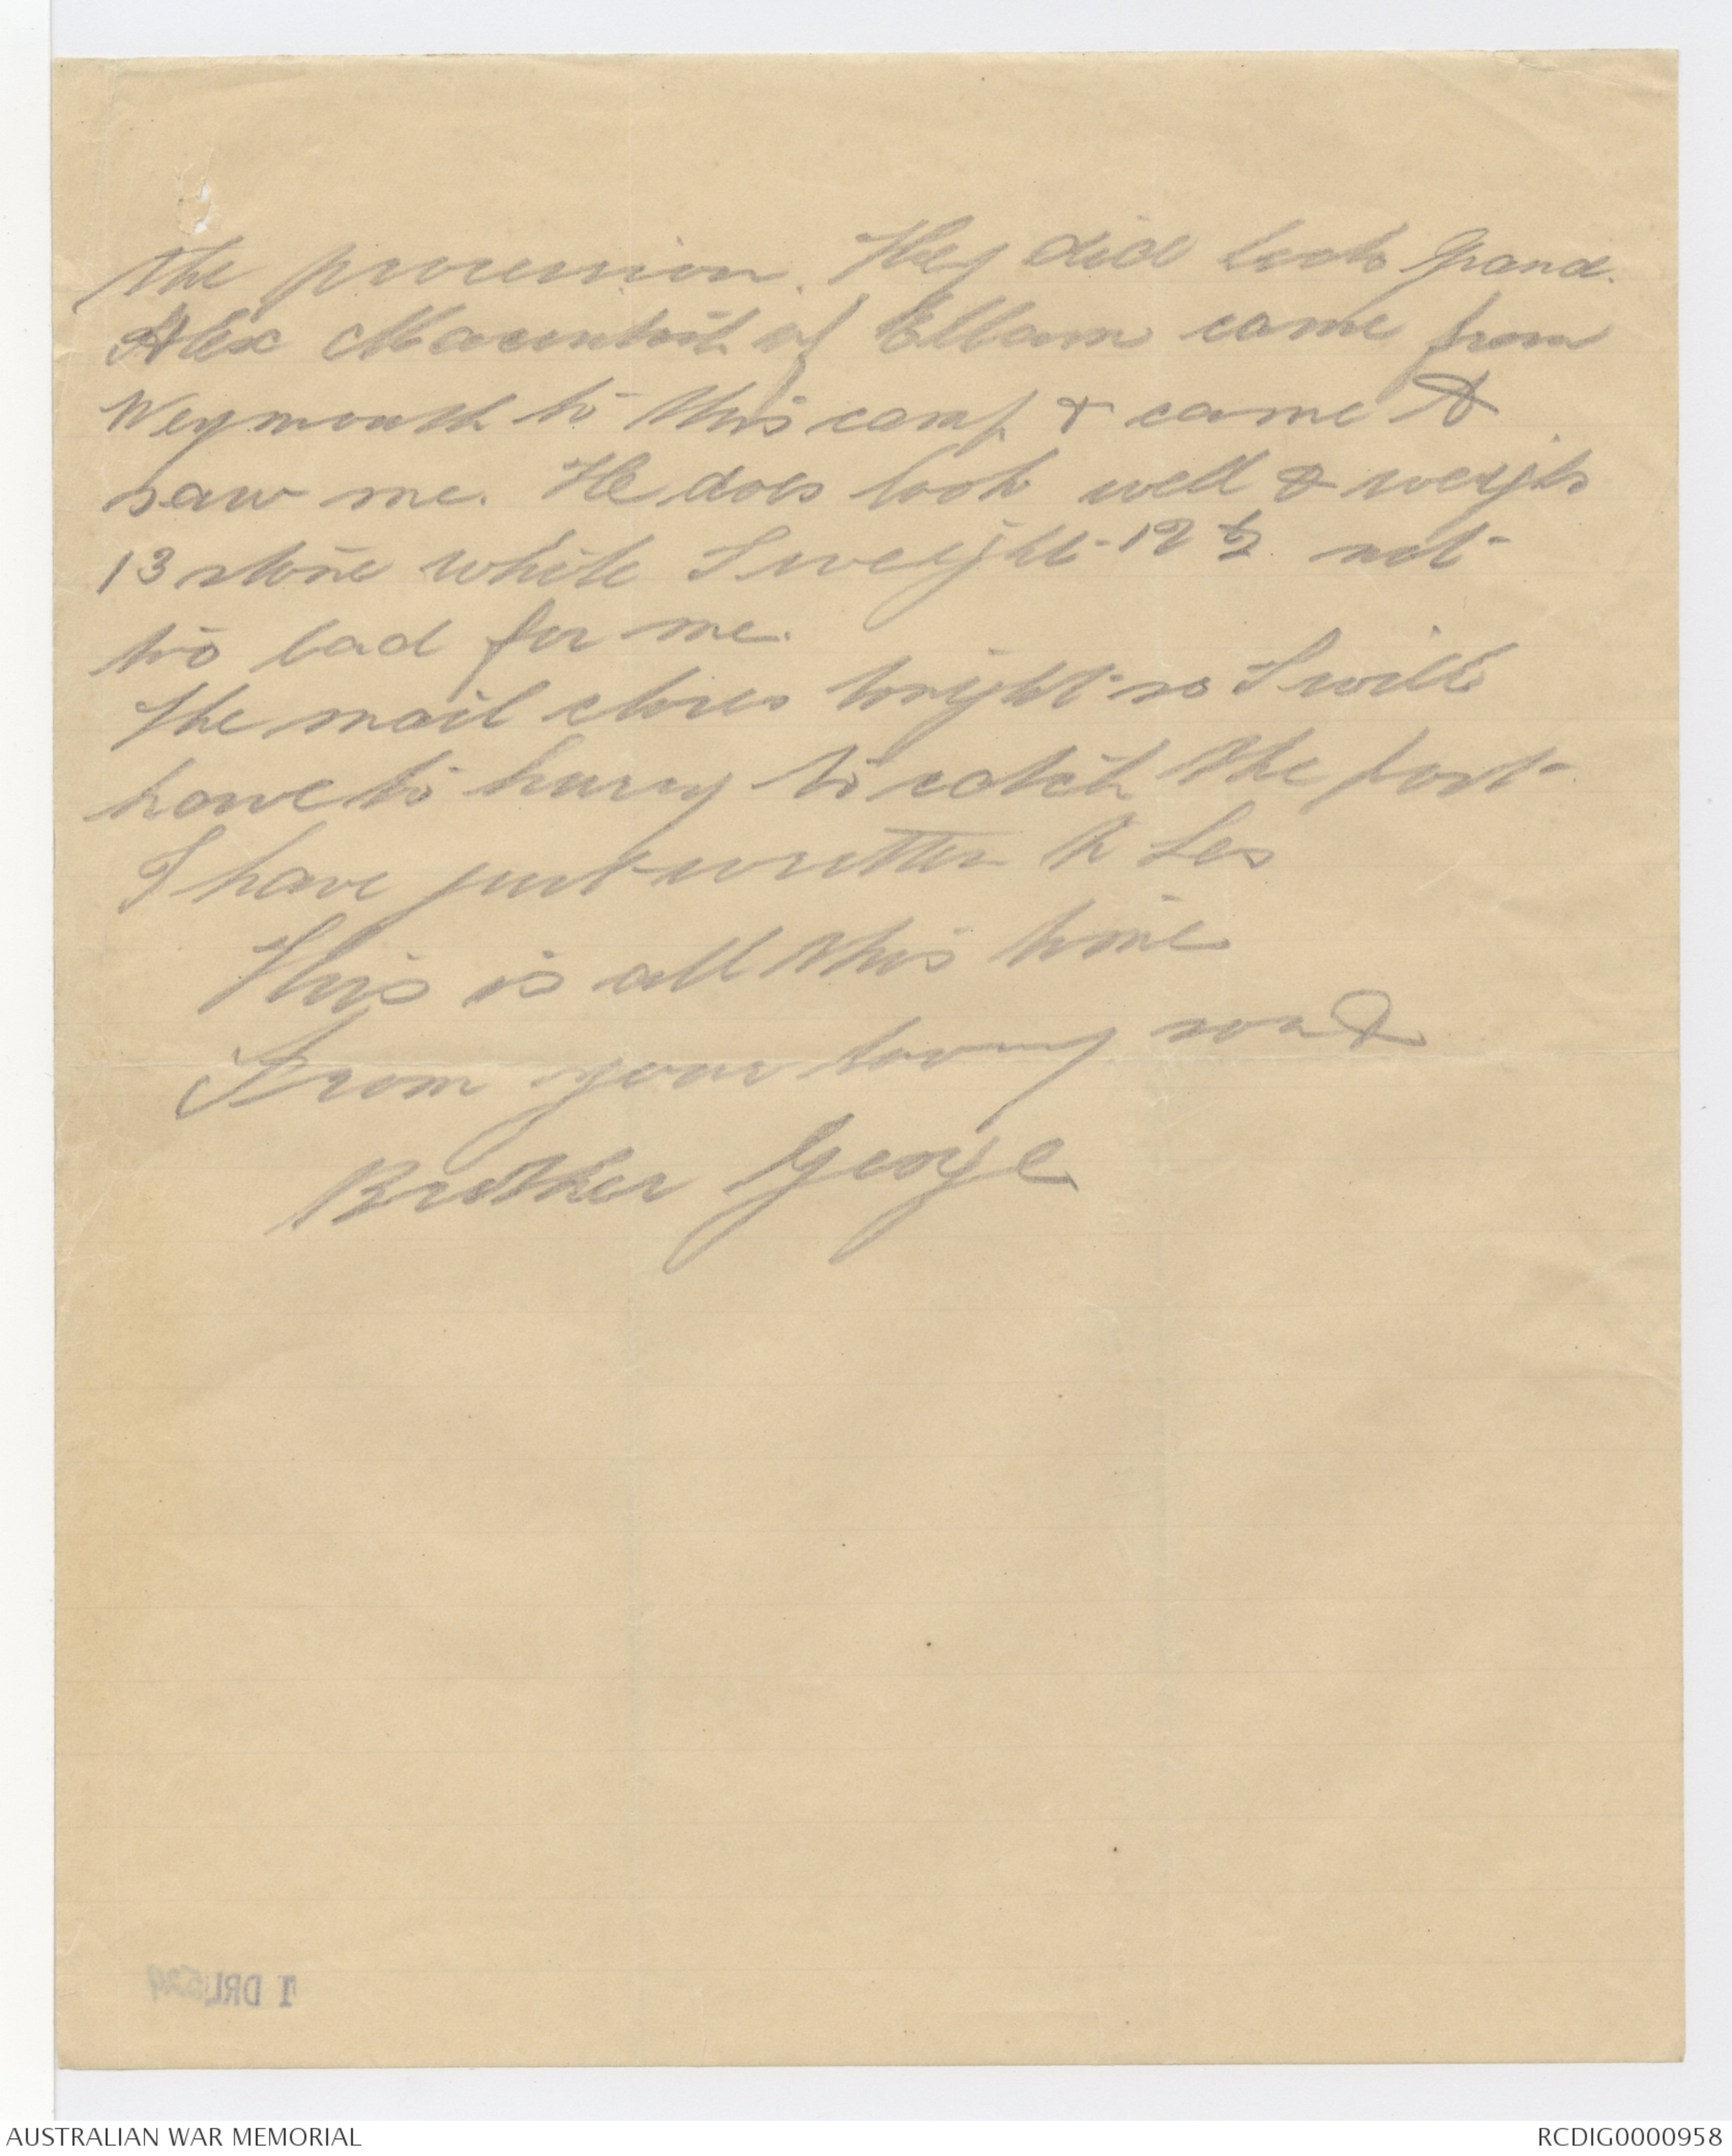 the procession. They did look grand.
Alex Macintosh of Ellam came from
Weymouth to this camp & came &
saw me. He does look well & weighs
13 stone while I weight 12 ½ not
too bad for me.
The mail closes tonight so I will
have to hurry to catch the post
I have just written to Les
This is all this time
From your loving son &
Brother George
1 DRL 539
AUSTRALIAN WAR MEMORIAL
RCDIG0000958